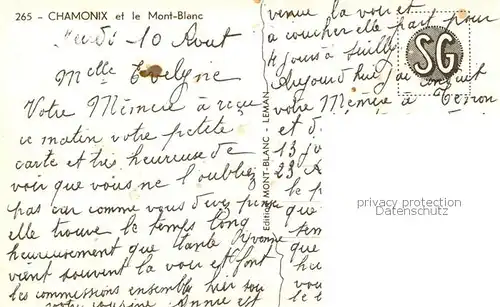 265 - CHAMONIX et le Mont-Blanc
Jeudi 10 Aout
Melle Evelyne
Votre Mémère à reçu
ce matin votre petite
carte et très heureuse de
voir que vous ne l'oubliez
pas car comme vous devez pensez
elle trouve le temps long
heureusement que tante Yvonne
vient souvent la voir et font
les commissions ensemble hier soir
votre cousine Annie est
venue la voir et
a coucher elle part pour
4 jours à
Aujourd'hui j'ai conduit
votre Mémère à
et d
13 jo
23 A
le p
que
tem
que
h
SG
Editions MONT-BLANC - LEMAN
privacy protection
Datenschutz